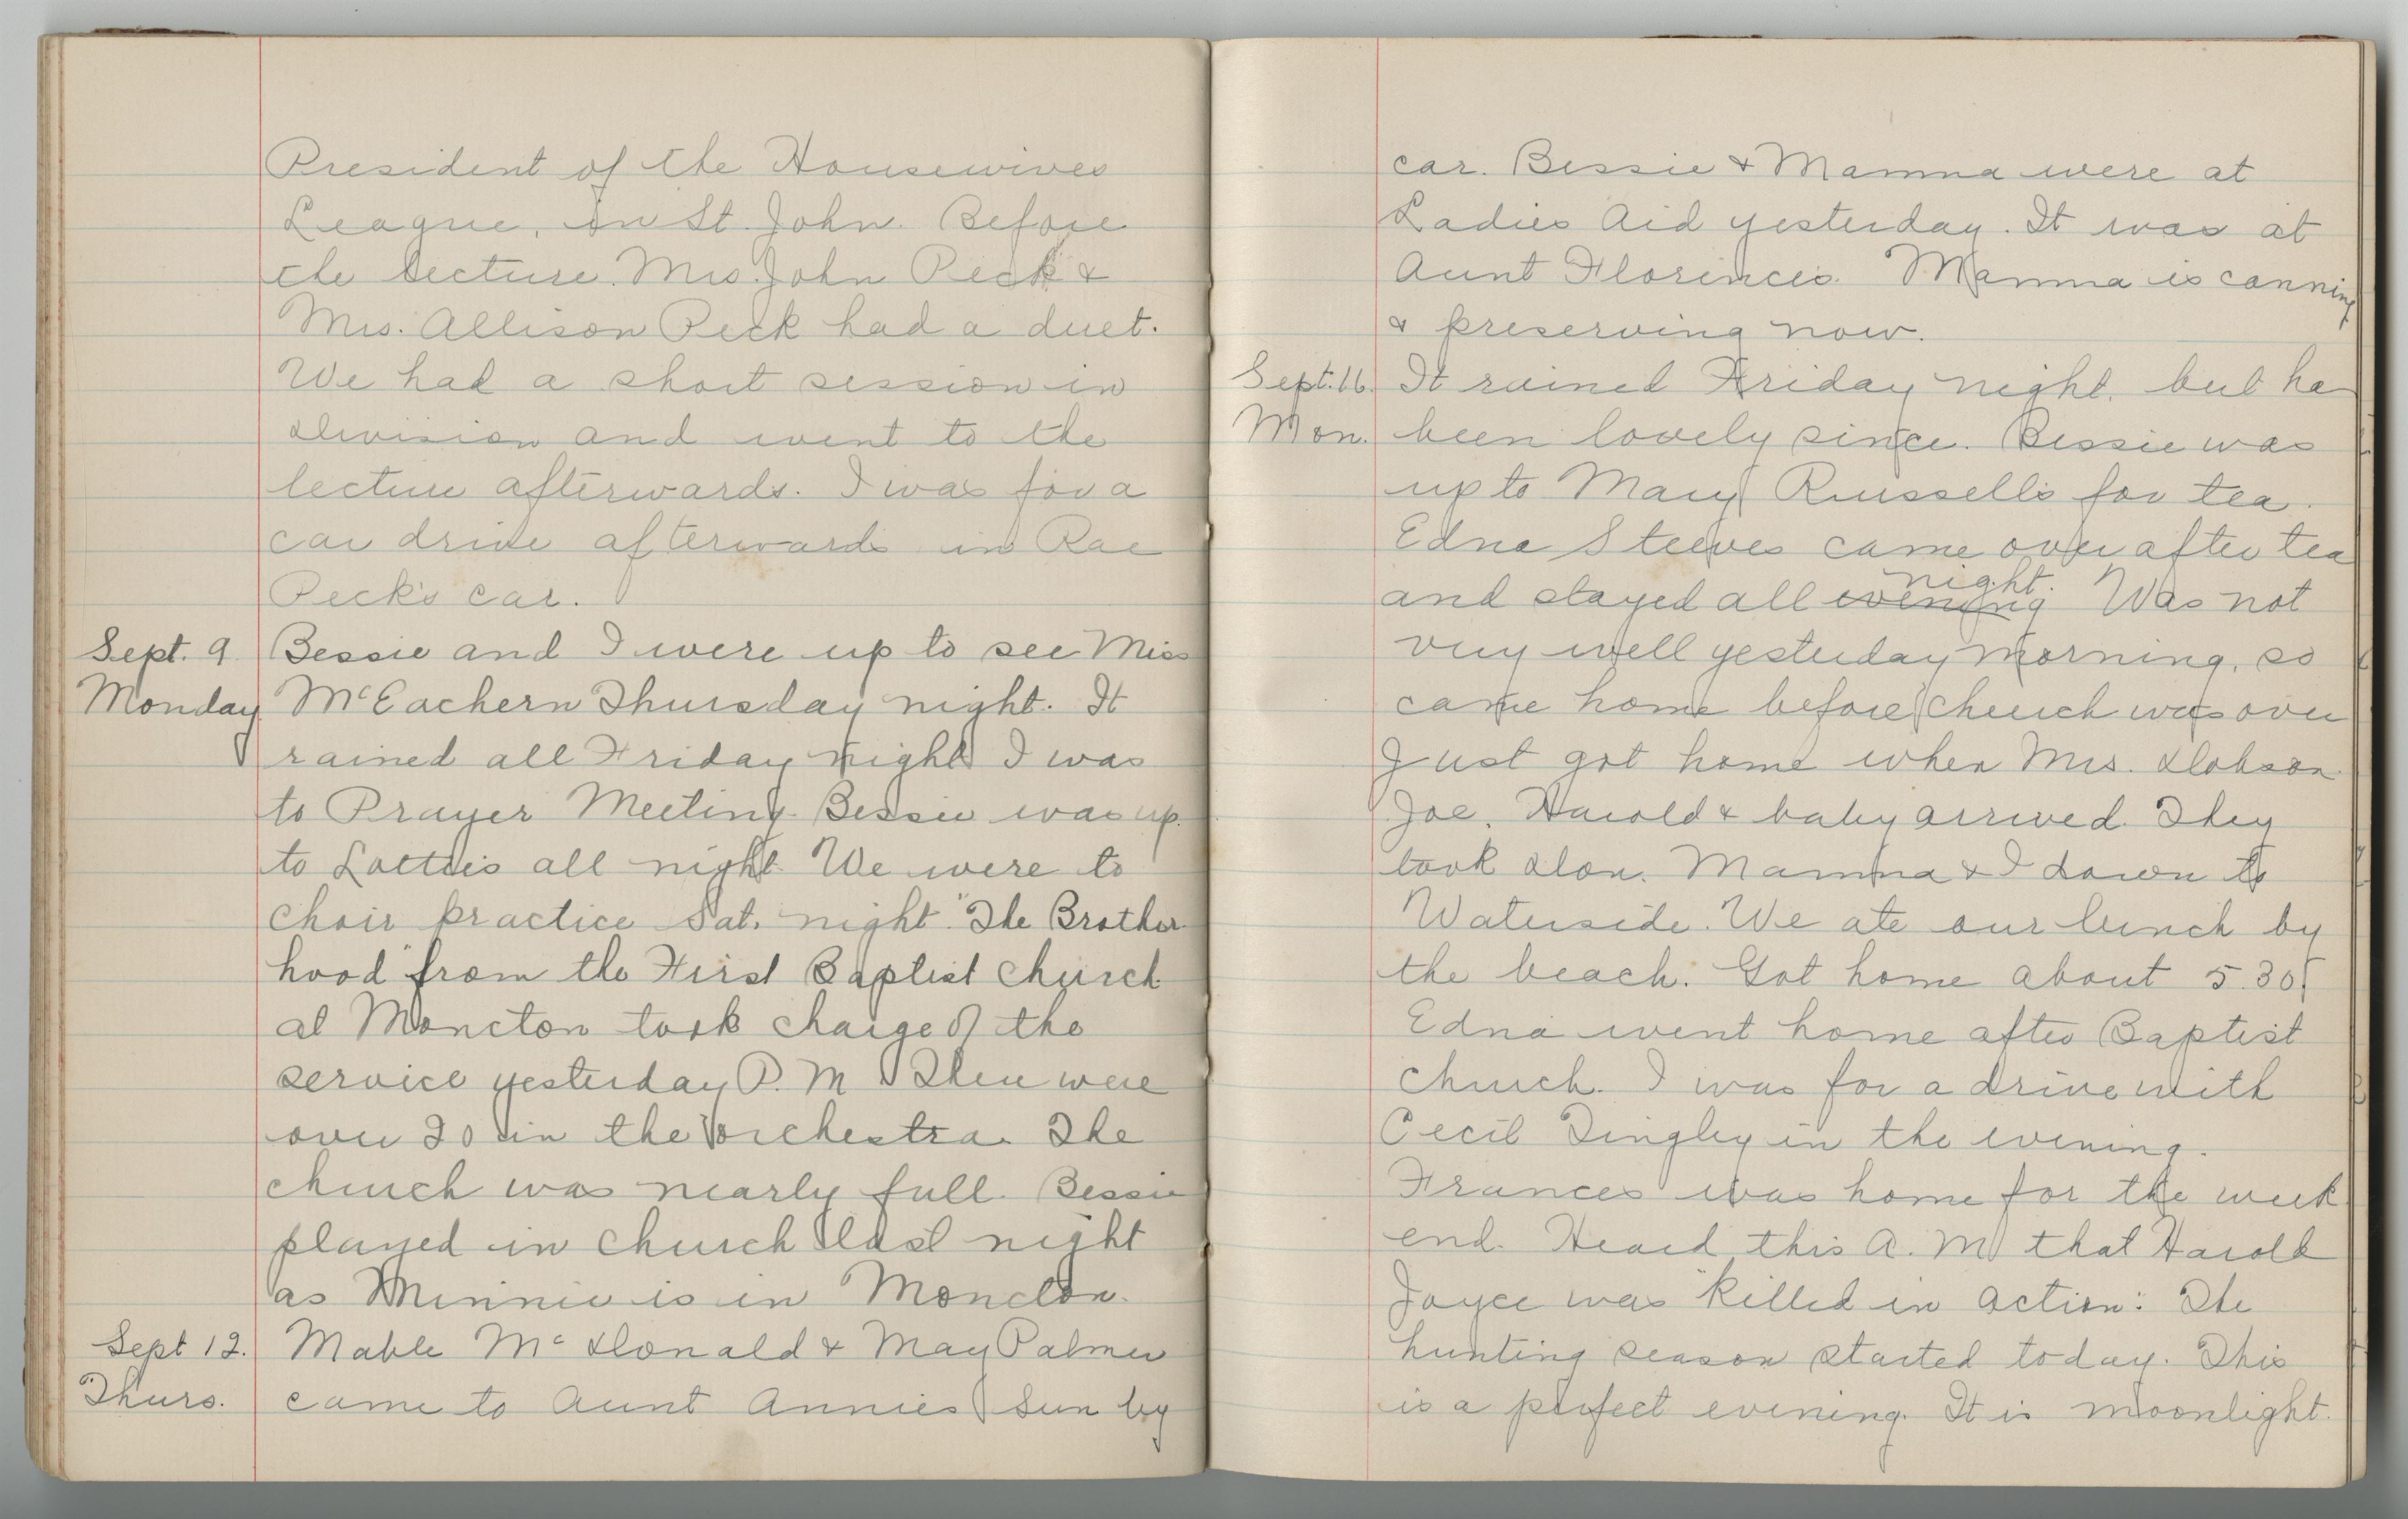 President of the Housewives
League, in St. John. Before
the lecture. Mrs. John Peck &
Mrs. Allison Peck had a duet.
We had a short session in
Division and went to the
lecture afterwards. I was for a
car drive afterwards in Rae
Peck's car.
Sept. 9 Bessie and I were up to see Miss
Monday McEachern Thursday night. It
rained all Friday night I was
to Prayer Meeting. Bessie was up
to Lottie's all night. We were to
choir practice Sat. night. "The Brother-
hood" from the First Baptist Church
at Moncton took charge of the
service yesterday P. M. There were
over 20 in the orchestra. The
church was nearly full. Bessie
played in church last night
as Minnie is in Moncton.
Sept 12. Mable McDonald & May Palmer
Thurs. came to Aunt Annie's Sun by
car. Bessie & Mamma were at
Ladies Aid yesterday. It was at
Aunt Florence's. Mamma is canning
& preserving now.
Sept. 16. It rained Friday night, but ha
Mon. been lovely since. Bessie was
up to Mary Russell's for tea.
Edna Steeves came over after tea
and stayed all evening night. Was not
very well yesterday morning, so
came home before church was over
Just got home when Mrs. Dobson
Joe, Harold & baby arrived. They
took Don, Mamma & I down to
Waterside. We ate our lunch by
the beach. Got home about 5.30.
Edna went home after Baptist
church. I was for a drive with
Cecil Tingley in the evening.
Frances was home for the week
end. Heard this A. M. that Harold
Joyce was "killed in action". The
hunting season started today. This
is a perfect evening. It is moonlight.